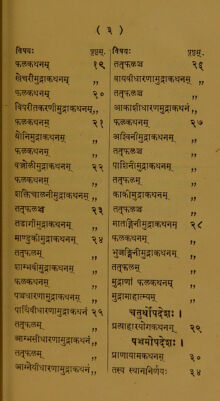 ( ३ )
विषयः पृष्ठम्.
फलकथनम् १९
खेचरीमुद्राकथनम् ,,
फलकथनम् २०
विपरीतकरणीमुद्राकथनम् ,,
फलकथनम् २१
योनिमुद्राकथनम् ,,
फलकथनम् ,,
वज्रोलीमुद्राकथनम् २२
फलकथनम् ,,
शक्तिचालनीमुद्राकथनम् ,,
तत्फलञ्च २३
तडागीमुद्राकथनम् ,,
माण्डुकीमुद्राकथनम् २४
तत्फलम् ,,
शाम्भवीमुद्राकथनम् ,,
फलकथनम् ,,
पञ्चधारणामुद्राकथनम् ,,
पार्थिवीधारणामुद्राकथनं २५
तत्फलम् ,,
आम्भसीधारणामुद्राकथनम् ,,
तत्फलम् ,,
आग्नेयीधारणामुद्राकथनं ,,
विषयः पृष्ठम्.
तत्फलञ्च २६
वायवीधारणामुद्राकथनम् ,,
तत्फलञ्च ,,
आकाशीधारणामुद्राकथनं ,,
फलकथनम् २७
अश्विनीमुद्राकथनम् ,,
तत्फलञ्च ,,
पाशिनीमुद्राकथनम् ,,
तत्फलञ्च ,,
काकीमुद्राकथनम् ,,
तत्फलञ्च ,,
मातङ्गिनीमुद्राकथनम् २८
फलकथनम् ,,
भुजङ्गिनीमुद्राकथनम् ,,
तत्फलम् ,,
मुद्राणां फलकथनम् ,,
मुद्रामाहात्म्यम् ,,
चतुर्थोपदेशः ।
प्रत्याहारयोगकथनम् २९
पञ्चमोपदेशः ।
प्राणायामकथनम् ३०
तस्य स्थाननिर्णयः ३४